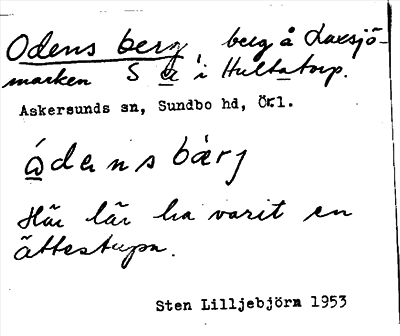 Odens berg, berg å Laxsjö-
marken S a i Hultatorp.
Askersunds sn, Sundbo hd, Örl.
ódens bærj
Här lär ha varit en
ättestupa.
Sten Lilljebjörn 1953